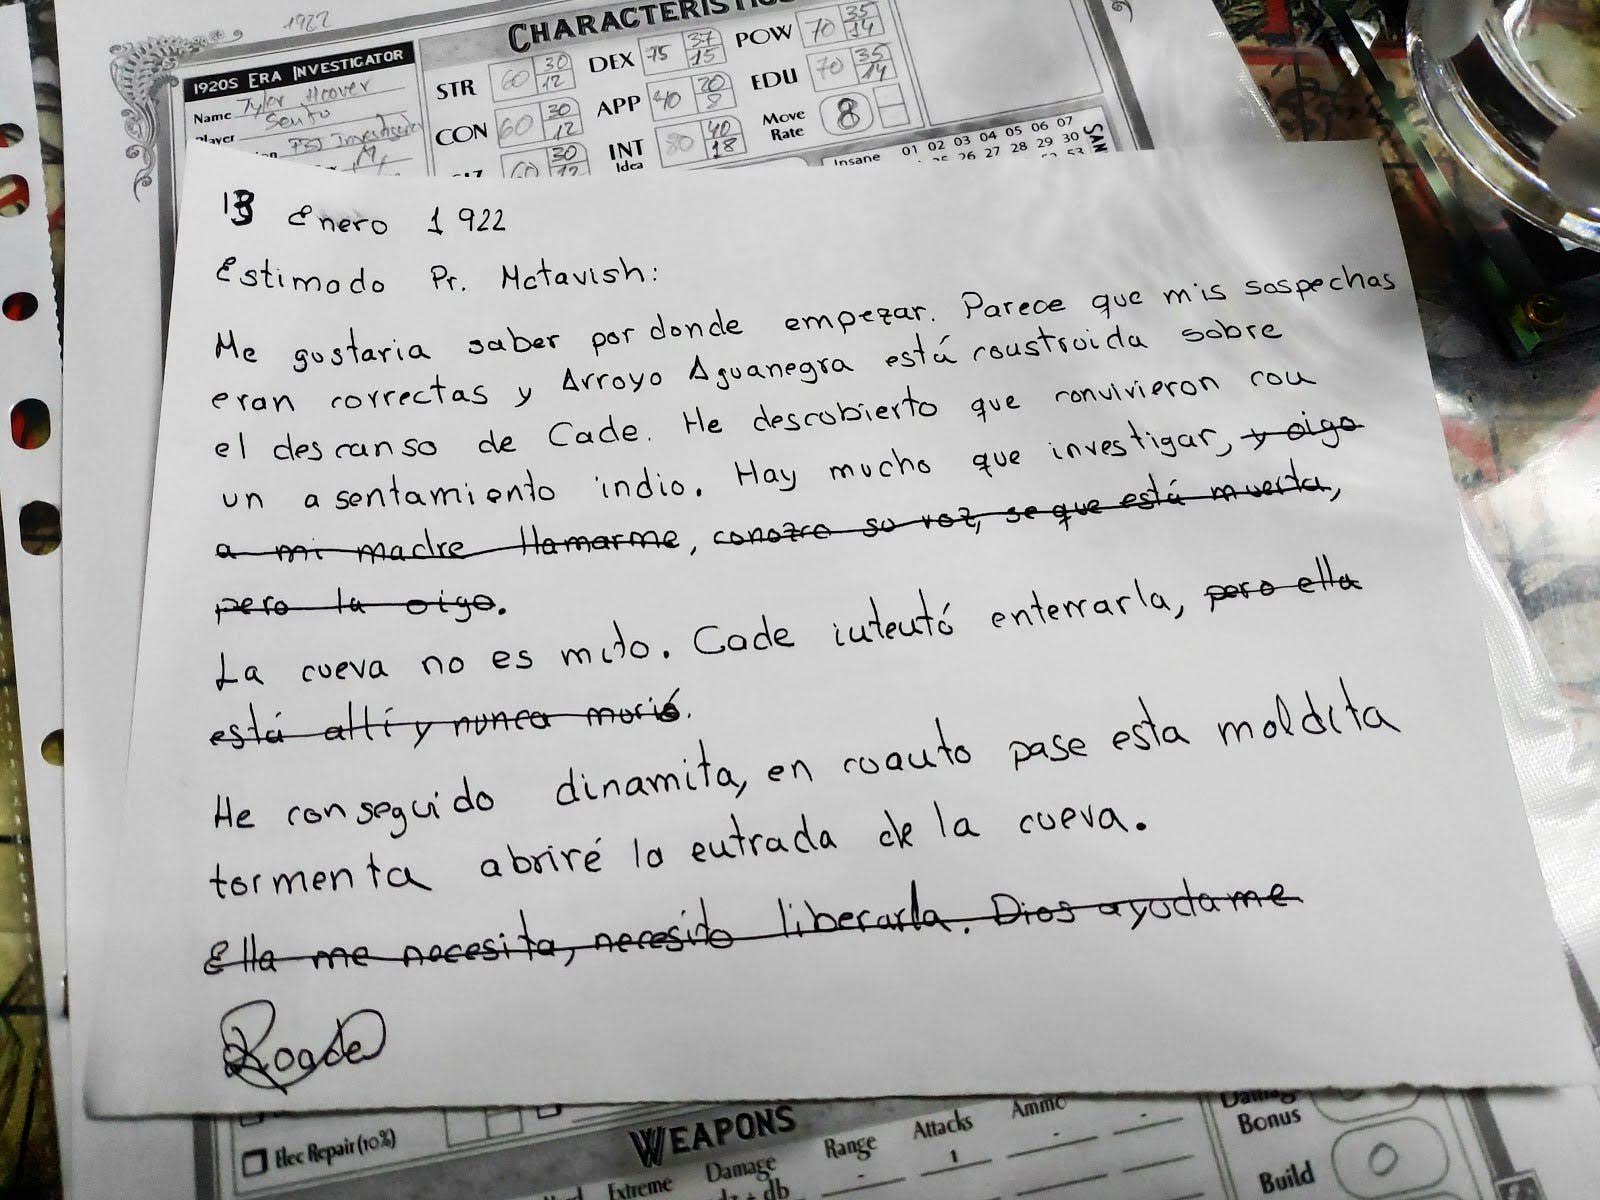 1922
CHARACTERISTICS
1920S ERA INVESTIGATOR
Name Tyler Hoover
STR 60 30 12
DEX 75 37 15
POW 70 35 14
CON 60 30 12
APP 40 20 8
EDU 70 35 14
60 30 12
INT Idea 80 40 18
Move Rate 8
Insane 01 02 03 04 05 06 07
26 27 28 29 30
SAN
13 Enero 1922
Estimado Pr. Mctavish:
Me gustaria saber por donde empezar. Parece que mis sospechas
eran correctas y Arroyo Aguanegra está construida sobre
el descanso de Cade. He descubierto que convivieron con
un asentamiento indio. Hay mucho que investigar, y oigo
a mi madre llamarme, conozco su voz, se que está muerta,
pero la oigo.
La cueva no es mito. Cade intentó enterrarla, pero ella
está allí y nunca murió.
He conseguido dinamita, en cuanto pase esta maldita
tormenta abriré la entrada de la cueva.
Ella me necesita, necesito liberarla. Dios ayudame
Elec Repair (10%)
WEAPONS
Damage Range Attacks Ammo
Extreme
1
+ db
Bonus
Build 0